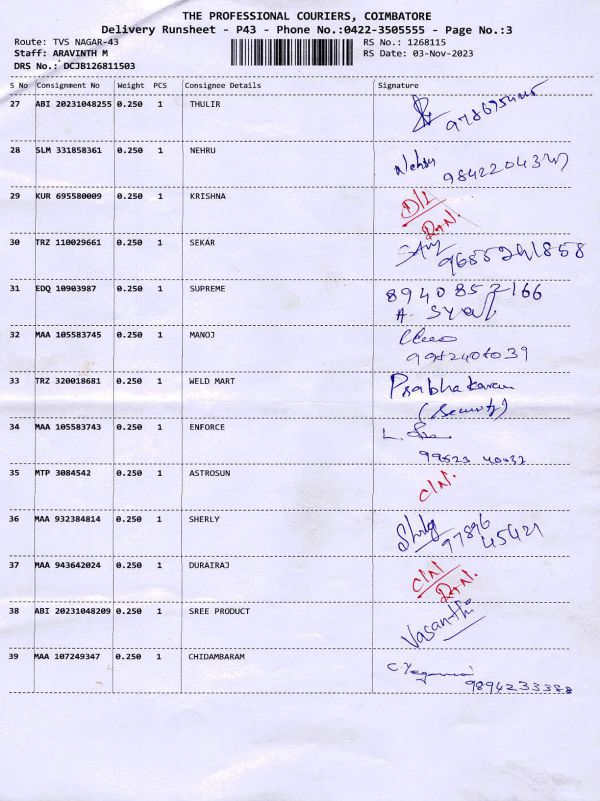 THE PROFESSIONAL COURIERS, COIMBATORE
Delivery Runsheet - P43 - Phone No.:0422-3505555 - Page No.:3
Route: TVS NAGAR-43 RS No.: 1268115
Staff: ARAVINTH M RS Date: 03-Nov-2023
DRS No.: DCJB126811503
S No Consignment No Weight PCS Consignee Details Signature
27 ABI 20231048255 0.250 1 THULIR
28 SLM 331858361 0.250 1 NEHRU Nehru
29 KUR 695580009 0.250 1 KRISHNA D/L
R+N.
30 TRZ 110029661 0.250 1 SEKAR
31 EDQ 10903987 0.250 1 SUPREME 8940852166
A.
32 MAA 105583745 0.250 1 MANOJ
33 TRZ 320018681 0.250 1 WELD MART Prabhakaran
(Security)
34 MAA 105583743 0.250 1 ENFORCE L.
99523 40032
35 MTP 3084542 0.250 1 ASTROSUN C/N.
36 MAA 932384814 0.250 1 SHERLY Sherly
97896
45421
37 MAA 943642024 0.250 1 DURAIRAJ C/N
R+N.
38 ABI 20231048209 0.250 1 SREE PRODUCT Vasanthi
39 MAA 107249347 0.250 1 CHIDAMBARAM C.
9894233388